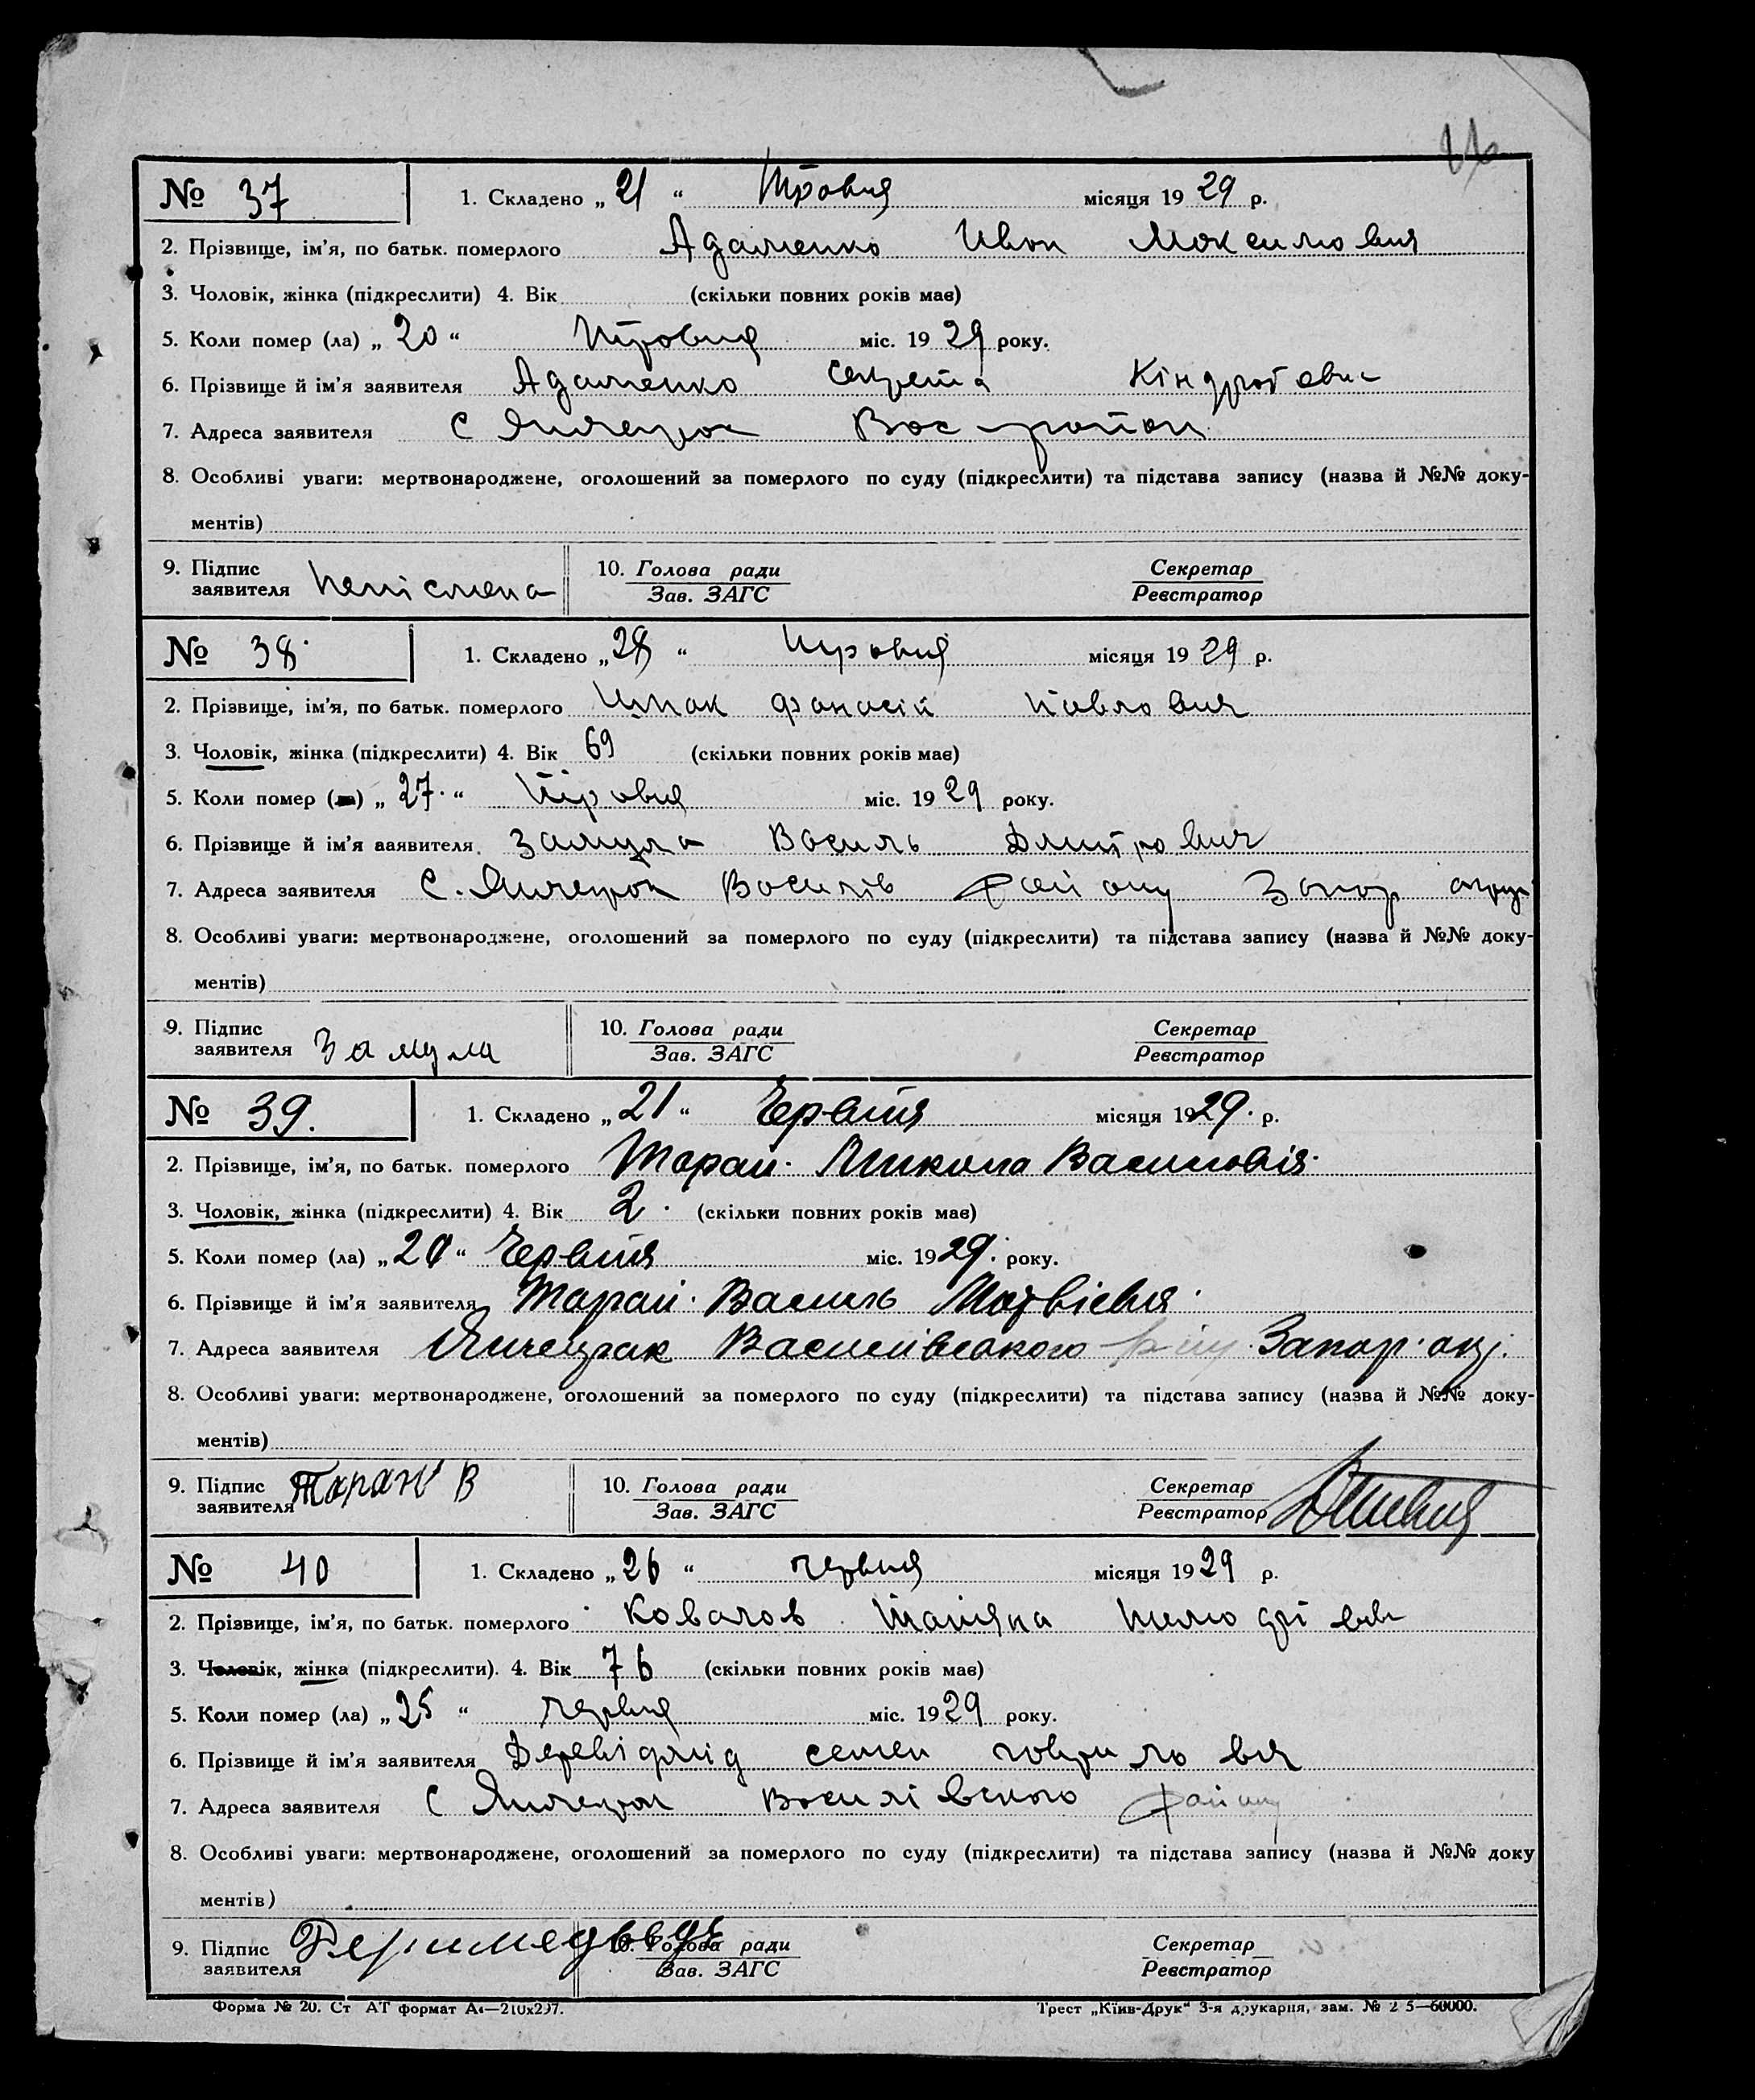 № 37 1. Складено „ 21 “ Травня місяця 19 29 р.
2. Прізвище, ім’я, по батьк. померлого Адаменко Иван Максимович
3. Чоловік, жінка (підкреслити) 4. Вік (скільки повних років має)
5. Коли помер (ла) „ 20 “ Травня міс. 19 29 року.
6. Прізвище й ім’я заявителя Адаменко Кіндратовис
7. Адреса заявителя С Янчекрак Вас район
8. Особливі уваги: мертвонароджене, оголошений за померлого по суду (підкреслити) та підстава запису (назва й №№ доку-
ментів)
9. Підпис заявителя неписмена 10. Голова ради Зав. ЗАГС Секретар Реєстратор
№ 38 1. Складено „ 28 “ Травня місяця 19 29 р.
2. Прізвище, ім’я, по батьк. померлого фанасій Павлович
3. Чоловік, жінка (підкреслити) 4. Вік 69 (скільки повних років має)
5. Коли помер (ла) „ 27. “ Травня міс. 19 29 року.
6. Прізвище й ім’я заявителя Замула Василь Дмитрович
7. Адреса заявителя С. Янчекрак Василів району Запор окру
8. Особливі уваги: мертвонароджене, оголошений за померлого по суду (підкреслити) та підстава запису (назва й №№ доку-
ментів)
9. Підпис заявителя Замула 10. Голова ради Зав. ЗАГС Секретар Реєстратор
№ 39. 1. Складено „ 21 “ Червня місяця 19 29. р.
2. Прізвище, ім’я, по батьк. померлого Таран Микола Васильовіч
3. Чоловік, жінка (підкреслити) 4. Вік 2. (скільки повних років має)
5. Коли помер (ла) „ 20 “ Червня міс. 19 29. року.
6. Прізвище й ім’я заявителя Таран Василь Матвієвич
7. Адреса заявителя Янчекрак Василівського р-ну Запор. окр.
8. Особливі уваги: мертвонароджене, оголошений за померлого по суду (підкреслити) та підстава запису (назва й №№ доку-
ментів)
9. Підпис заявителя Таран В 10. Голова ради Зав. ЗАГС Секретар Реєстратор
№ 40 1. Складено „ 26 “ червня місяця 19 29 р.
2. Прізвище, ім’я, по батьк. померлого Ковалов Татяна
3. Чоловік, жінка (підкреслити). 4. Вік 76 (скільки повних років має)
5. Коли помер (ла) „ 25 “ червня міс. 19 29 року.
6. Прізвище й ім’я заявителя семен гаврилович
7. Адреса заявителя С Янчекрак Василівского району
8. Особливі уваги: мертвонароджене, оголошений за померлого по суду (підкреслити) та підстава запису (назва й №№ доку
ментів)
9. Підпис заявителя 10. Голова ради Зав. ЗАГС Секретар Реєстратор
Форма № 20. Ст АТ формат А₄—210х297. Трест „Київ-Друк“ 3-я друкарня, зам. № 2 5—60000.